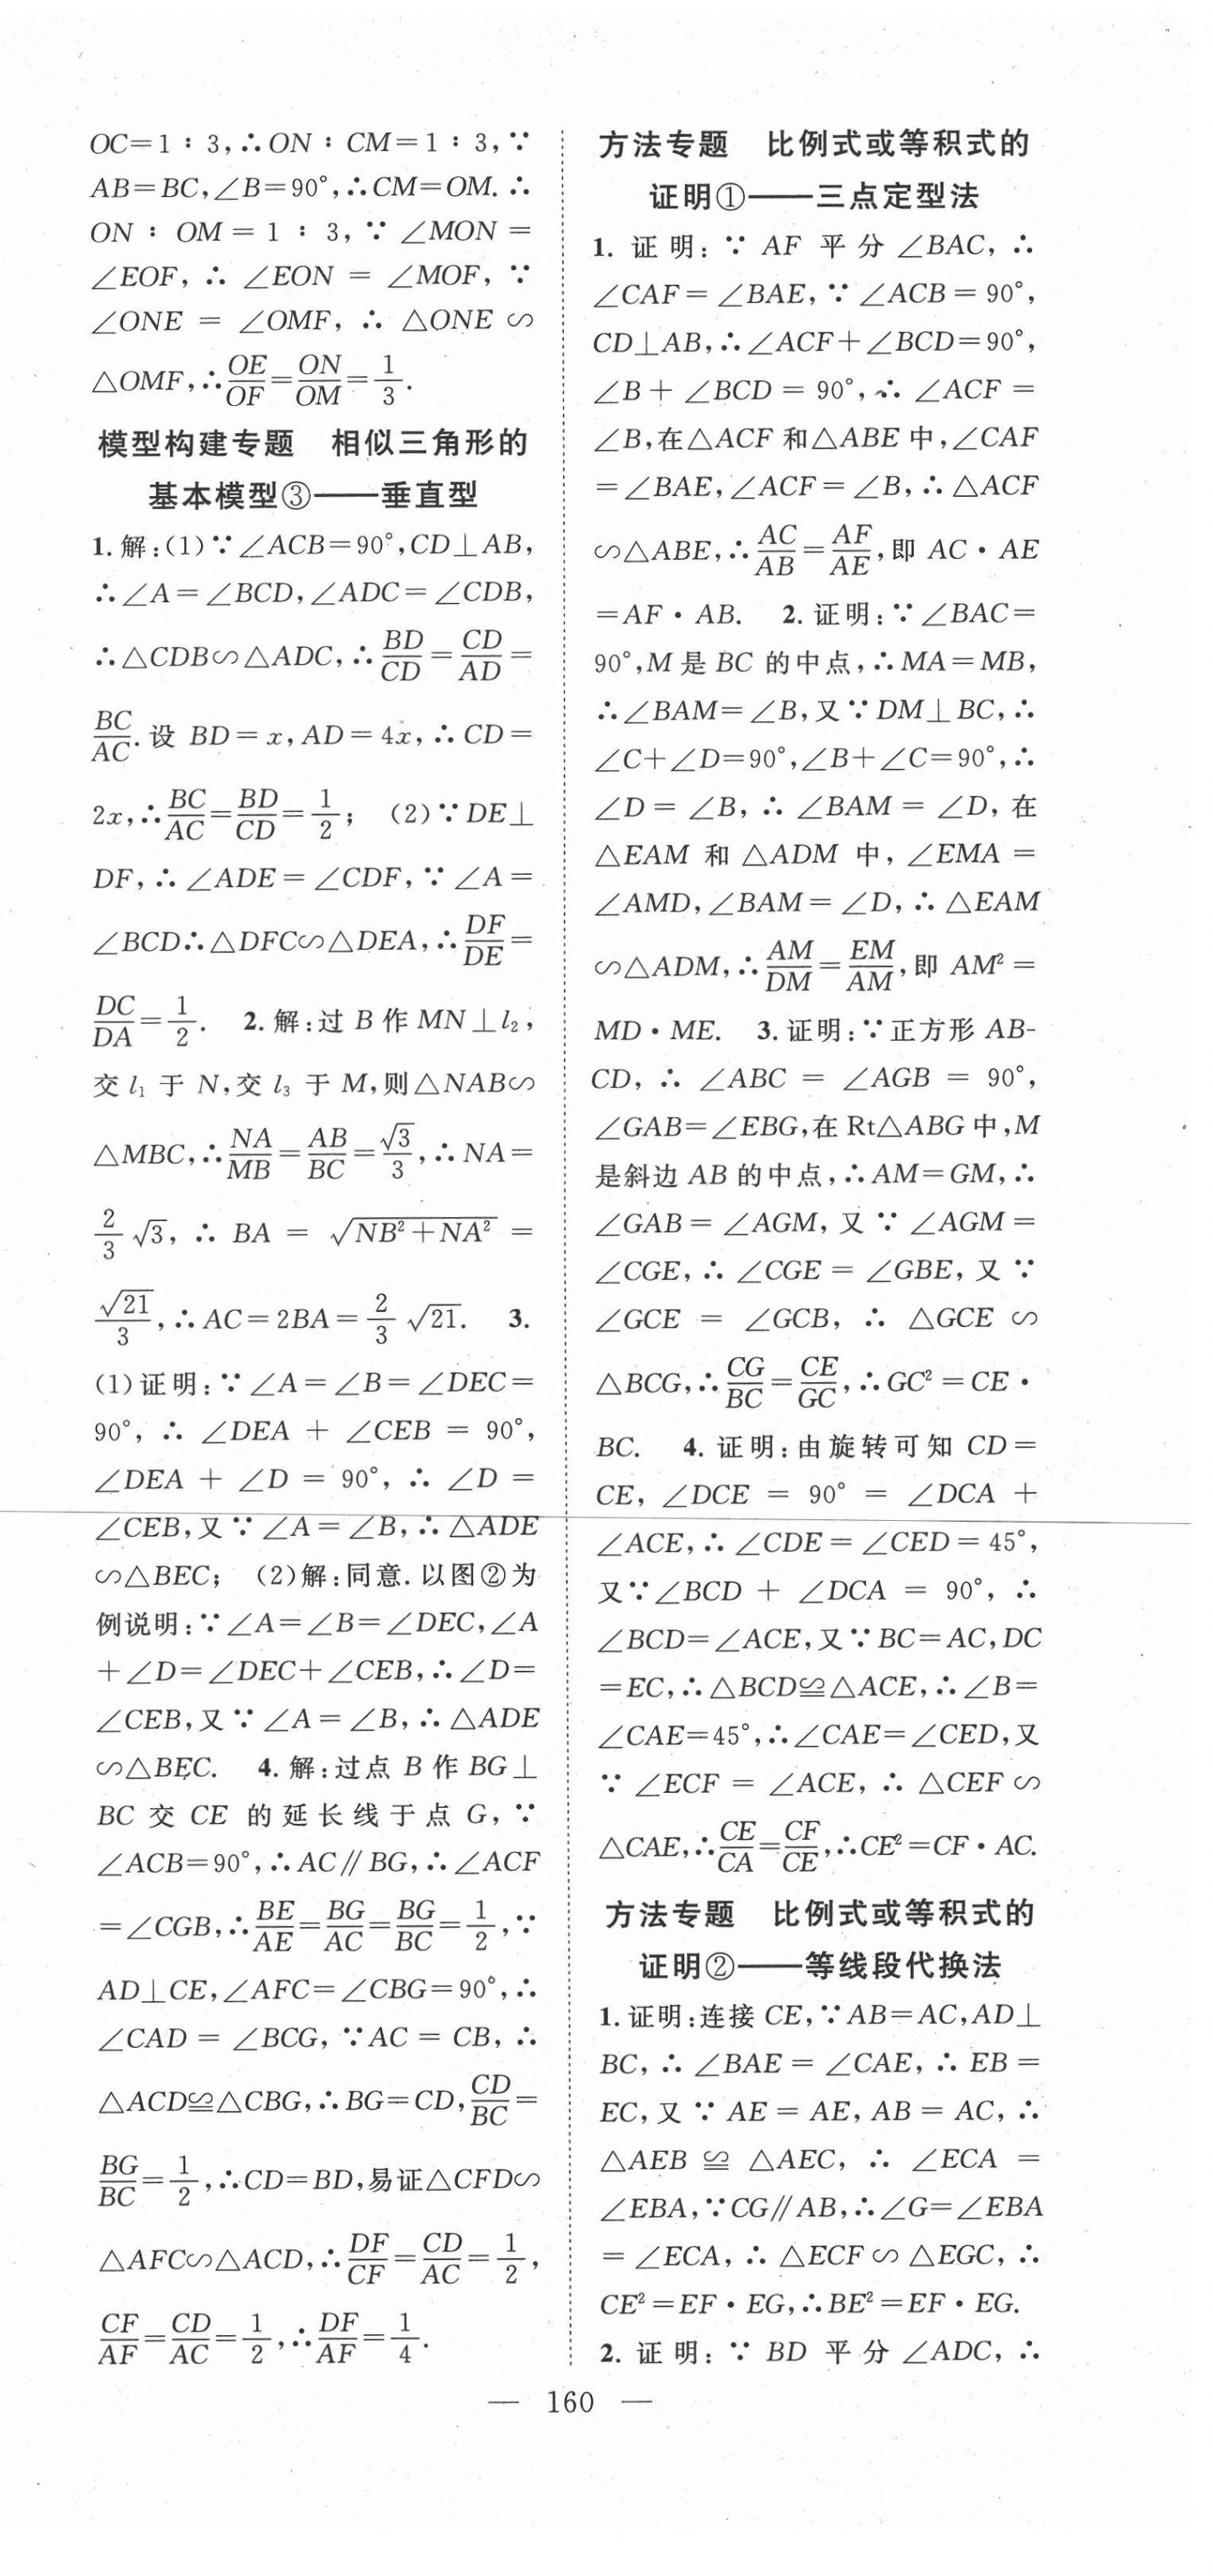 OC=1∶3,∴ON∶CM=1∶3,∵
AB=BC,∠B=90°,∴CM=OM.∴
ON∶OM=1∶3,∵∠MON=
∠EOF,∴∠EON=∠MOF,∵
∠ONE=∠OMF,∴△ONE∽
△OMF,∴OE/OF=ON/OM=1/3.
模型构建专题 相似三角形的
基本模型③——垂直型
1.解:(1)∵∠ACB=90°,CD⊥AB,
∴∠A=∠BCD,∠ADC=∠CDB,
∴△CDB∽△ADC,∴BD/CD=CD/AD=
BC/AC.设BD=x,AD=4x,∴CD=
2x,∴BC/AC=BD/CD=1/2; (2)∵DE⊥
DF,∴∠ADE=∠CDF,∵∠A=
∠BCD∴△DFC∽△DEA,∴DF/DE=
DC/DA=1/2. 2.解:过B作MN⊥l₂,
交l₁于N,交l₃于M,则△NAB∽
△MBC,∴NA/MB=AB/BC=√3/3,∴NA=
2/3√3,∴BA=√(NB²+NA²)=
√21/3,∴AC=2BA=2/3√21. 3.
(1)证明:∵∠A=∠B=∠DEC=
90°,∴∠DEA+∠CEB=90°,
∠DEA+∠D=90°,∴∠D=
∠CEB,又∵∠A=∠B,∴△ADE
∽△BEC; (2)解:同意.以图②为
例说明:∵∠A=∠B=∠DEC,∠A
+∠D=∠DEC+∠CEB,∴∠D=
∠CEB,又∵∠A=∠B,∴△ADE
∽△BEC. 4.解:过点B作BG⊥
BC交CE的延长线于点G,∵
∠ACB=90°,∴AC∥BG,∴∠ACF
=∠CGB,∴BE/AE=BG/AC=BG/BC=1/2,∵
AD⊥CE,∠AFC=∠CBG=90°,∴
∠CAD=∠BCG,∵AC=CB,∴
△ACD≌△CBG,∴BG=CD,CD/BC=
BG/BC=1/2,∴CD=BD,易证△CFD∽
△AFC∽△ACD,∴DF/CF=CD/AC=1/2,
CF/AF=CD/AC=1/2,∴DF/AF=1/4.
方法专题 比例式或等积式的
证明①——三点定型法
1.证明:∵AF平分∠BAC,∴
∠CAF=∠BAE,∵∠ACB=90°,
CD⊥AB,∴∠ACF+∠BCD=90°,
∠B+∠BCD=90°,∴∠ACF=
∠B,在△ACF和△ABE中,∠CAF
=∠BAE,∠ACF=∠B,∴△ACF
∽△ABE,∴AC/AB=AF/AE,即AC·AE
=AF·AB. 2.证明:∵∠BAC=
90°,M是BC的中点,∴MA=MB,
∴∠BAM=∠B,又∵DM⊥BC,∴
∠C+∠D=90°,∠B+∠C=90°,∴
∠D=∠B,∴∠BAM=∠D,在
△EAM和△ADM中,∠EMA=
∠AMD,∠BAM=∠D,∴△EAM
∽△ADM,∴AM/DM=EM/AM,即AM²=
MD·ME. 3.证明:∵正方形AB-
CD,∴∠ABC=∠AGB=90°,
∠GAB=∠EBG,在Rt△ABG中,M
是斜边AB的中点,∴AM=GM,∴
∠GAB=∠AGM,又∵∠AGM=
∠CGE,∴∠CGE=∠GBE,又∵
∠GCE=∠GCB,∴△GCE∽
△BCG,∴CG/BC=CE/GC,∴GC²=CE·
BC. 4.证明:由旋转可知CD=
CE,∠DCE=90°=∠DCA+
∠ACE,∴∠CDE=∠CED=45°,
又∵∠BCD+∠DCA=90°,∴
∠BCD=∠ACE,又∵BC=AC,DC
=EC,∴△BCD≌△ACE,∴∠B=
∠CAE=45°,∴∠CAE=∠CED,又
∵∠ECF=∠ACE,∴△CEF∽
△CAE,∴CE/CA=CF/CE,∴CE²=CF·AC.
方法专题 比例式或等积式的
证明②——等线段代换法
1.证明:连接CE,∵AB=AC,AD⊥
BC,∴∠BAE=∠CAE,∴EB=
EC,又∵AE=AE,AB=AC,∴
△AEB≌△AEC,∴∠ECA=
∠EBA,∵CG∥AB,∴∠G=∠EBA
=∠ECA,∴△ECF∽△EGC,∴
CE²=EF·EG,∴BE²=EF·EG.
2.证明:∵BD平分∠ADC,∴
— 160 —